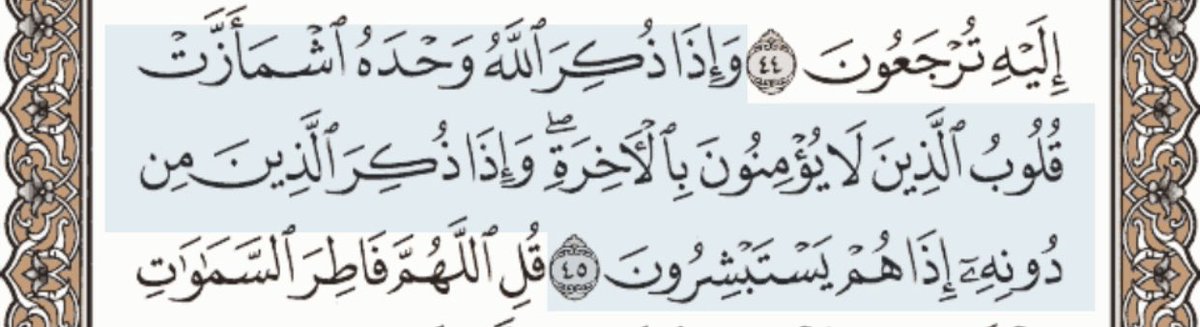 إِلَيْهِ تُرْجَعُونَ ٤٤ وَإِذَا ذُكِرَ ٱللَّهُ وَحْدَهُ ٱشْمَأَزَّتْ
قُلُوبُ ٱلَّذِينَ لَا يُؤْمِنُونَ بِٱلْأَخِرَةِ ۖ وَإِذَا ذُكِرَ ٱلَّذِينَ مِن
دُونِهِۦٓ إِذَا هُمْ يَسْتَبْشِرُونَ ٤٥ قُلِ ٱللَّهُمَّ فَاطِرَ ٱلسَّمَٰوَٰتِ